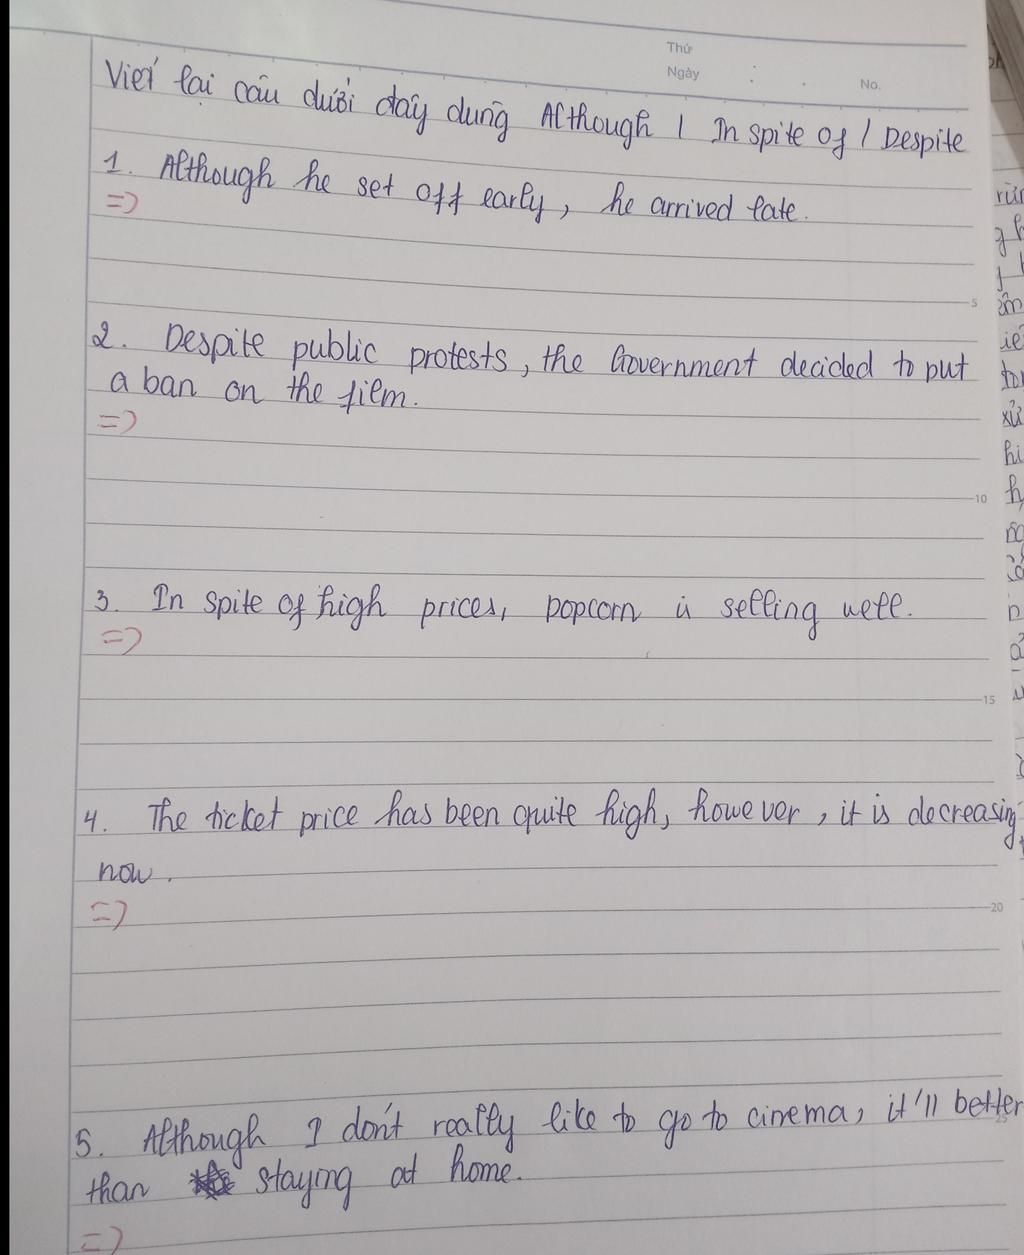 Thứ
Ngày : . No.
Viết lại câu dưới đây dùng Although / In spite of / Despite
1. Although he set off early, he arrived late.
=>
5
2. Despite public protests, the Government decided to put
a ban on the film.
=>
10
3. In spite of high prices, popcorn is selling well.
=>
15
4. The ticket price has been quite high, however, it is decreasing
now.
=>
20
5. Although I don't really like to go to cinema, it'll better
25
than staying at home.
=>